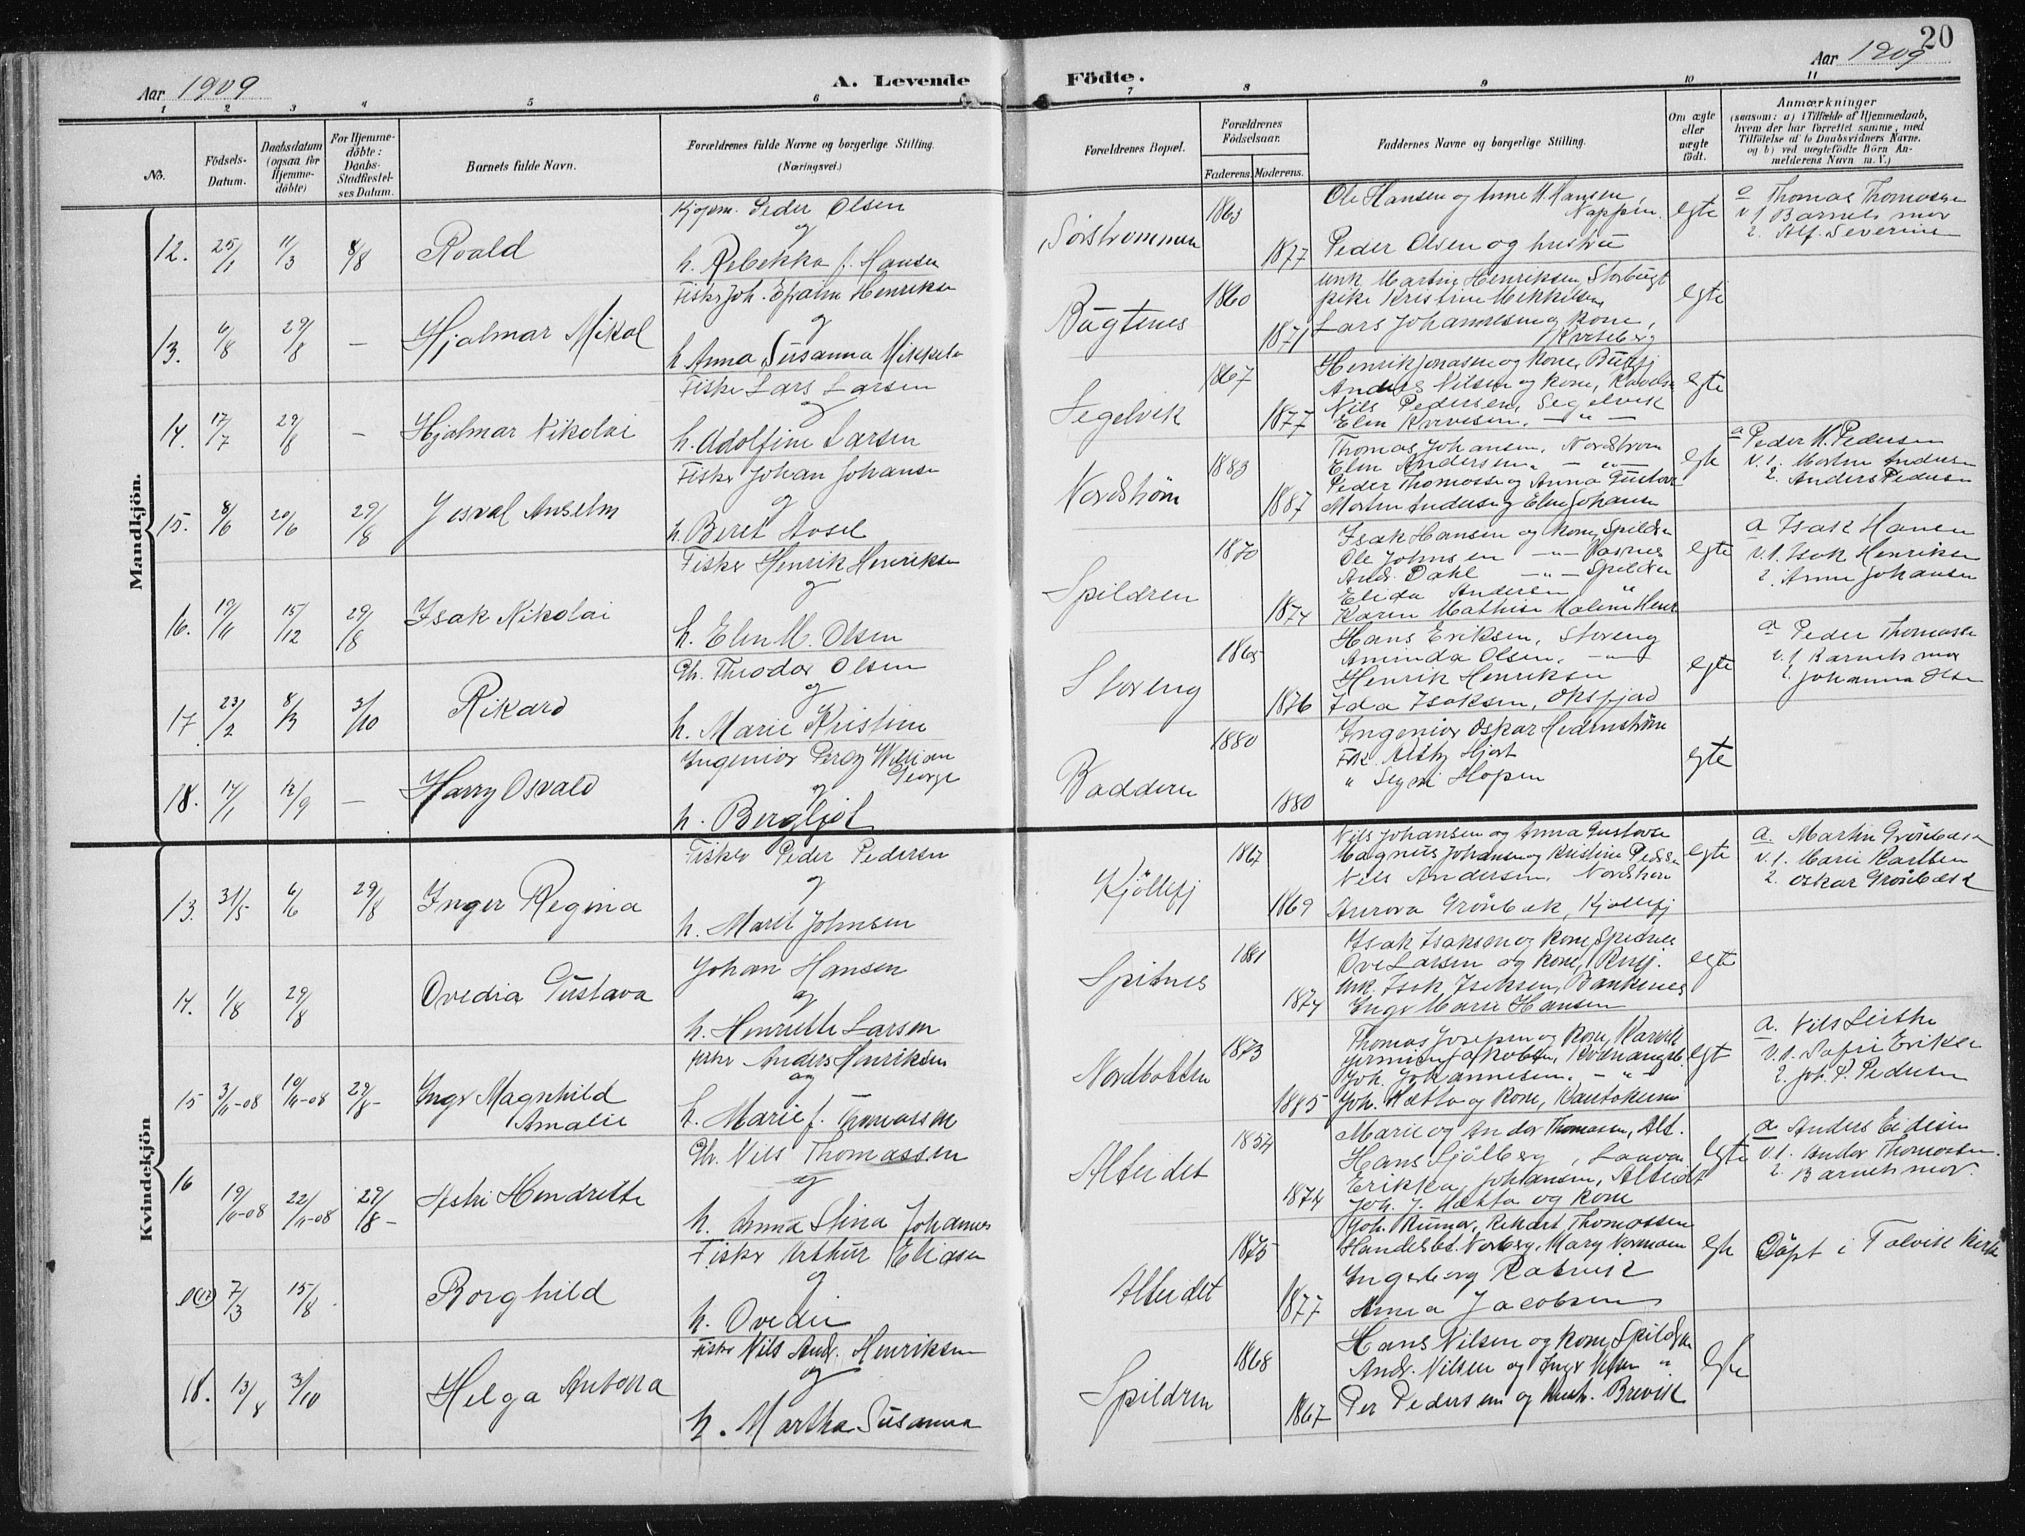 20
Aar 1909
A. Levende
Födte.
Aar 1909
1 2 3 4 5 6 7 8 9 10 11
No.
Födsels-
Datum.
Daabsdatum
(ogsaa for
Hjemme-
döbte)
For Hjemme-
döbte:
Daabs-
Stadfæstel-
ses Datum.
Barnets fulde Navn.
Forældrenes fulde Navne og borgerlige Stilling.
(Næringsvei.)
Forældrenes Bopæl.
Forældrenes
Födselsaar.
Faderens. Moderens.
Faddernes Navne og borgerlige Stilling.
Om ægte
eller
uægte
födt.
Anmærkninger
(saasom: a) i Tilfælde af Hjemmedaab,
hvem der har forrettet samme, med
Tilföielse af to Daabsvidners Navne,
og b) ved uægtefödte Börn An-
melderens Navn m. V.)
Mandkjön.
12. 25/1 11/3 8/8 Roald
Peder Olsen
og
h. Rebekka f. Hansen
1863
1877
Ole Hansen og Anne H. Hansen,
Nappen.
Peder Olsen og hustru
egte
Thomas Thomasen
v. 1 Barnets mor
2. Alf. Severine
13. 6/8 29/8 — Hjalmar Mikal
Fisker Joh. Efraim Henriksen
og
h. Anna Susanna Mikkels
Bugtenes
1860
1871
Martin Henriksen, Storbugt
pike Kristine Mikkelsen
Lars Johannesen og kone,
egte
14. 17/7 29/8 — Hjalmar Nikolai
Fisker Lars Larsen
og
h. Adolfine Larsen
Segelvik
1867
1877
Henrik Jonassen og kone, Burfj
Anders Nilsen og kone,
Nils Pedersen, Segelvik
Elen
egte
15. 8/6 20/6 29/8 Josval Anselm
Fisker Johan Johansen
og
h. Beret
Nordstrøm
1883
1887
Thomas Johansen, Nordstrøm
Elen Andersen
Peder Thomassen og Anna Gustava
Morten Andersen og Elen Johansen
egte
a Peder N. Pedersen
v. 1. Morten Andersen
2. Anders Pedersen
16. 19/11 15/12 29/8 Isak Nikolai
Fisker Henrik Henriksen
og
h. Elen M. Olsen
Spildren
1870
1874
Isak Hansen og kone, Spildren
Ole Johnsen
And. Dahl — " — Spildren
Elida Andersen "
Karen Mathise Malene Henr
egte
a Isak Hansen
v. 1. Isak Henriksen
2. Anne Johansen
17. 23/2 8/3 3/10 Rikard
Gb. Theodor Olsen
og
h. Marie Kristine
Storeng
1865
1876
Hans Eriksen, Storeng
Aminda Olsen, — " —
Henrik Henriksen
Ida Isaksen, Oksfjord
egte
a Peder Thomassen
v. 1 Barnets mor
2. Johanna Olsen
18. 14/1 12/9 — Harry Osvald
Ingeniør Percy William
George
og
h. Bergljot
Badderen
1880
1880
Ingeniør Oskar Hedenstrøm
Frk. Hjort
" Signe Hopen
egte
Kvindekjön
13. 31/5 6/6 29/8 Inger Regina
Fisker Peder Pedersen
og
h. Maret Johnsen
Kjøllefj
1867
1869
Nils Johansen og Anna Gustava
Magnus Johansen og Kristine Peders
Nils Andersen, Nordstrøm
Aurora Grönbæk, Kjøllefj
egte
a. Martin Grönbæk
v. 1. Marie Karlsen
2. Oskar Grönbæk
14. 1/8 29/8 Ovedia Gustava
Johan Hansen
og
h. Henriette Larsen
Spitnes
1881
1874
Isak Isaksen og kone, Spednes
Ove Larsen og kone, Burfj.
Unk. Isak Isaksen, Bankenes
Inger Marie Hansen
egte
15 3/11-08 19/11-08 29/8- Inger Magnhild
Amalie
Fisker Anders Henriksen
og
h. Marie f. Thomassen
Nordbotten
1873
1885
Thomas Josepsen og kone, Karvik
Jakobsen, Kvænangsb.
Joh. Johannesen. — " —
Joh. Hætta og kone, Kautokeino
egt
a.
v. 1. Sofie Eriksen
2. Joh. P. Pedersen
16 19/11-08 22/11-08 29/8- Astri Hendrette
Gb. Nils Thomassen
og
h. Anna Stina Johannes
Alteidet
1854
1874
Marie og Ander Thomassen, Alt.
Hans Sjølberg,
Erikka Johansen, Alteidet
Joh. J. Hætta og kone
egte
a Anders Eidesen
v. 1. Ander Thomassen.
2. Barnets mor.
(17) 7/3 15/8 Borghild
Fisker Arthur Eliasen
og
h. Ovedie
Alteidet
1875
1877
Joh. Rikart Thomassen
Handelsbt. Norberg, Mary Normann
Ingeborg
Anna Jacobsen
egte
Döpt i Talvik kirke
18. 13/8 3/10 Helga Antona
Fisker Nils And. Henriksen
og
h. Martha Susanna
Spildren
1868
1867
Hans Nilsen og kone, Spildren
And. Nilsen og Inger "
Per Pedersen og hust. Brevik
egte